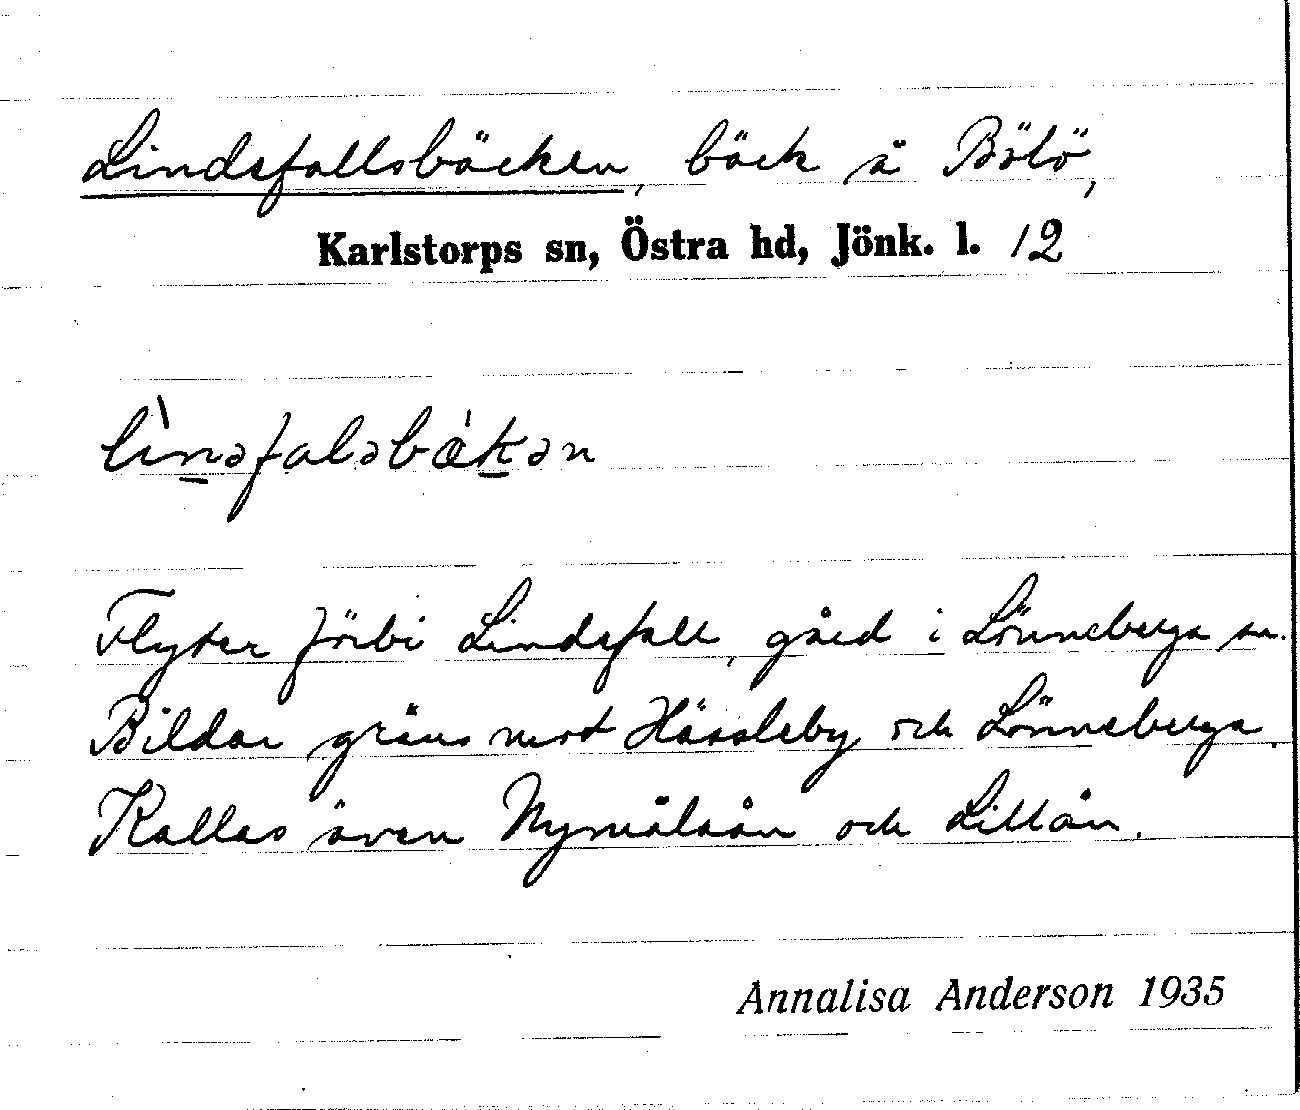 Lindefallsbäcken, bäck å Bölö,
Karlstorps sn, Östra hd, Jönk. l. 12
lìnəfaləbǽkən
Flyter förbi Lindefall, gård i Lönneberga sn.
Bildar gräns mot Hässleby och Lönneberga.
Kallas även Nymålaån och Lillån.
Annalisa Anderson 1935